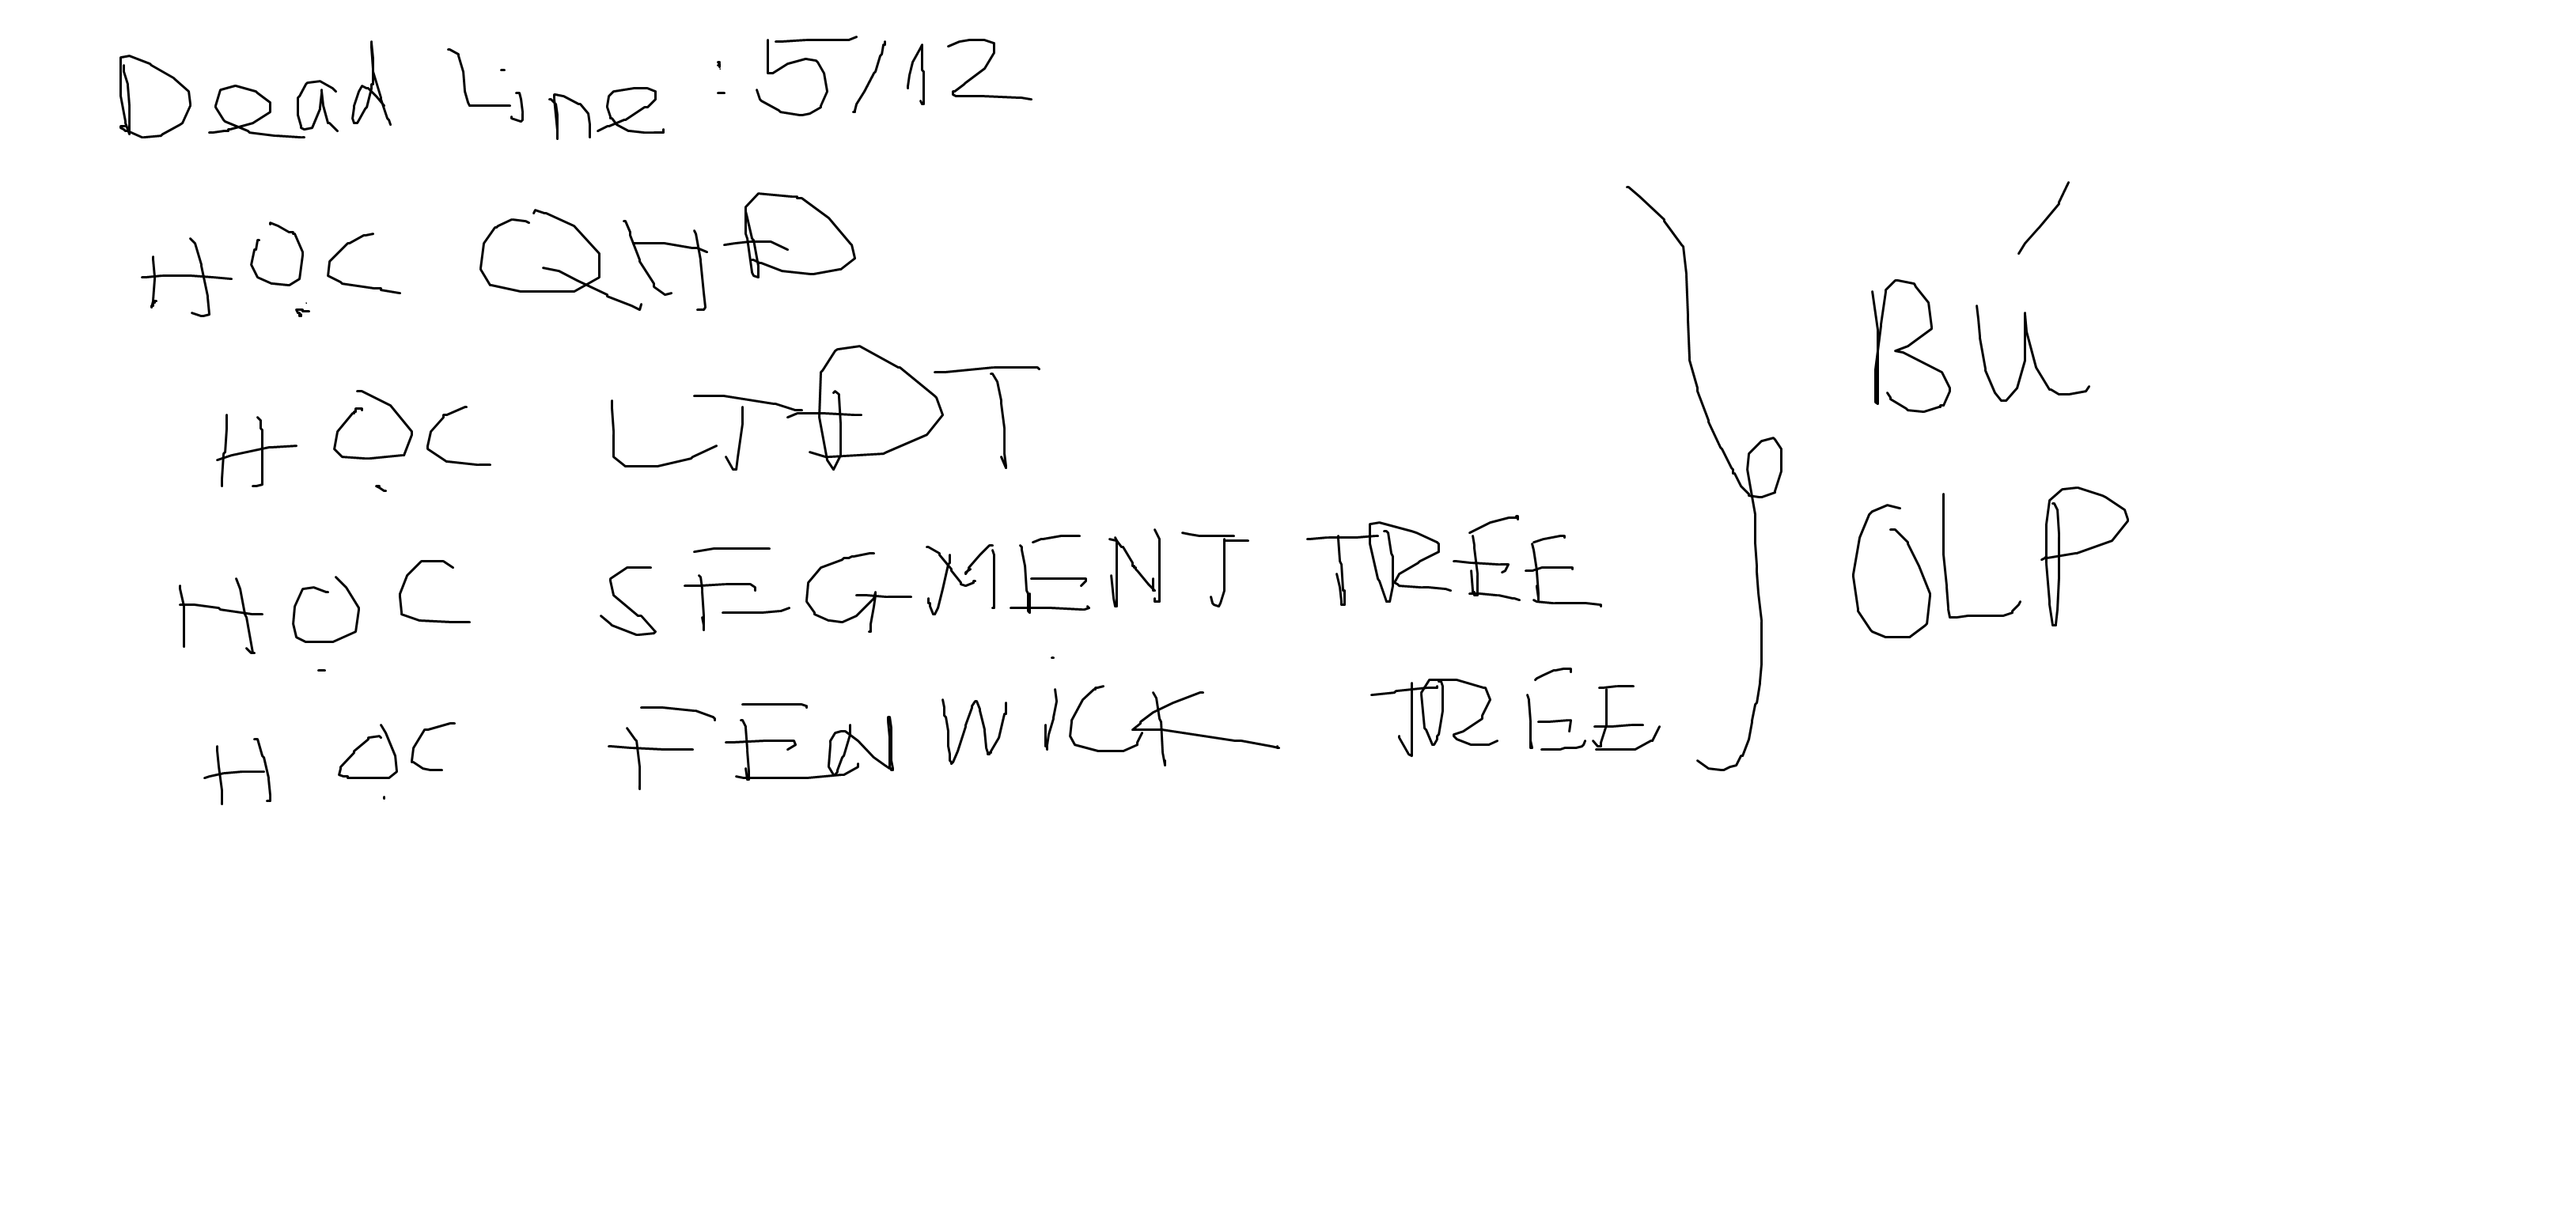 Dead Line : 5/12
HỌC QHĐ
HỌC LTĐT
HỌC SEGMENT TREE
HỌC FENWiCK TREE
BÚ
OLP